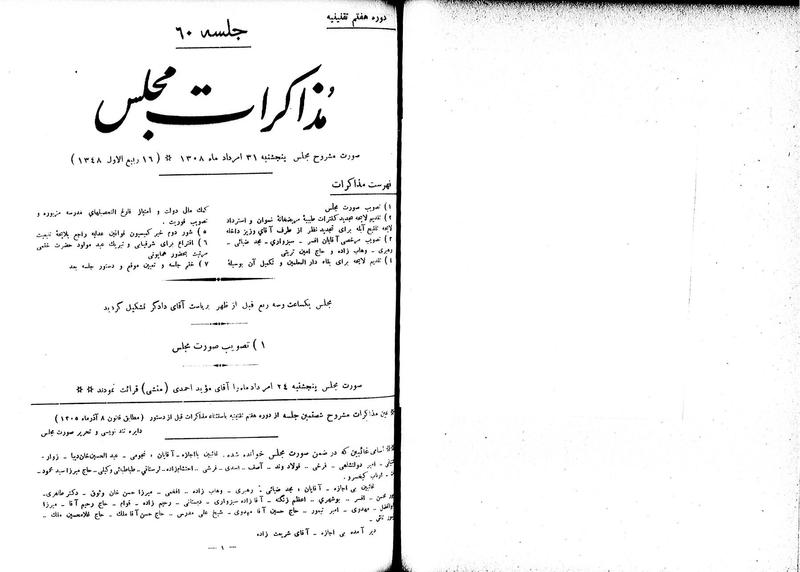 دوره هفتم تقنینیه
جلسه ۶۰
مذاکرات مجلس
صورت مشروح مجلس پنجشنبه ۳۱ امرداد ماه ۱۳۰۸ * (۱۶ ربیع الاول ۱۳۴۸)
فهرست مذاکرات
۱) تصویب صورت مجلس
۲) تقدیم لایحه تجدید کنترات طبیبهٔ مریضخانهٔ نسوان و استرداد
لایحه تلقیح آبله برای تجدید نظر از طرف آقای وزیر داخله
۳) تصویب مرخصی آقایان افسر ـ سبزواری ـ مجد ضیائی ـ
رهبری ـ وهاب زاده و حاج امین تربتی
۴) تقدیم لایحه برای بناء دار المعلمین و تکمیل آن بوسیلهٔ
کمك مالی دولت و امتیاز فارغ التحصیلهای مدرسه مزبوره و
تصویب فوریت .
۵) شور دوم خبر کمیسیون قوانین عدلیه راجع بلایحهٔ تابعیت
۶) اقتراع برای شرفیابی و تبریك عید مولود حضرت ختمی
مرتبت بحضور همایونی
۷) ختم جلسه و تعیین موقع و دستور جلسه بعد
مجلس یکساعت وسه ربع قبل از ظهر بریاست آقای دادگر تشکیل گردید
۱) تصویب صورت مجلس
صورت مجلس پنجشنبه ۲۴ امرداد ماه را آقای مؤید احمدی (منشی) قرائت نمودند **
* عین مذاکرات مشروح شصتمین جلسه از دوره هفتم تقنینیه باستثناء مذاکرات قبل از دستور (مطابق قانون ۸ آذرماه ۱۳۰۵)
دایره تند نویسی و تحریر صورت مجلس
** اسامی غائبین که در ضمن صورت مجلس خوانده شده . غائبین با اجازه ـ آقایان ، نجومی ـ عبد الحسین خان دیبا ـ زوار ـ
امیر دولتشاهی ـ فرخی ـ فولاد وند ـ آصف ـ اسدی ـ قرشی ـ احتشام زاده ـ لرستانی ـ طباطبائی وکیلی ـ حاج میرزا سید محمود ـ
ارباب کیخسرو .
غائبین بی اجازه ـ آقایان ، مجد ضیائی ، رهبری ـ وهاب زاده ـ افخمی ـ میرزا حسن خان وثوق ـ دکتر طاهری ـ
افسر ـ بوشهری ـ اعظم زنگنه ـ آقا زاده سبزواری ـ دبستانی ـ رحیم زاده ـ قوام ـ حاج رحیم آقا ـ میرزا
مهدوی ـ امیر تیمور ـ حاج حسین آقا مهدوی ـ شیخ علی مدرس ـ حاج حسن آقا ملك ـ حاج غلامحسین ملك ـ
دیر آمده بی اجازه ـ آقای شریعت زاده
— ۱ —